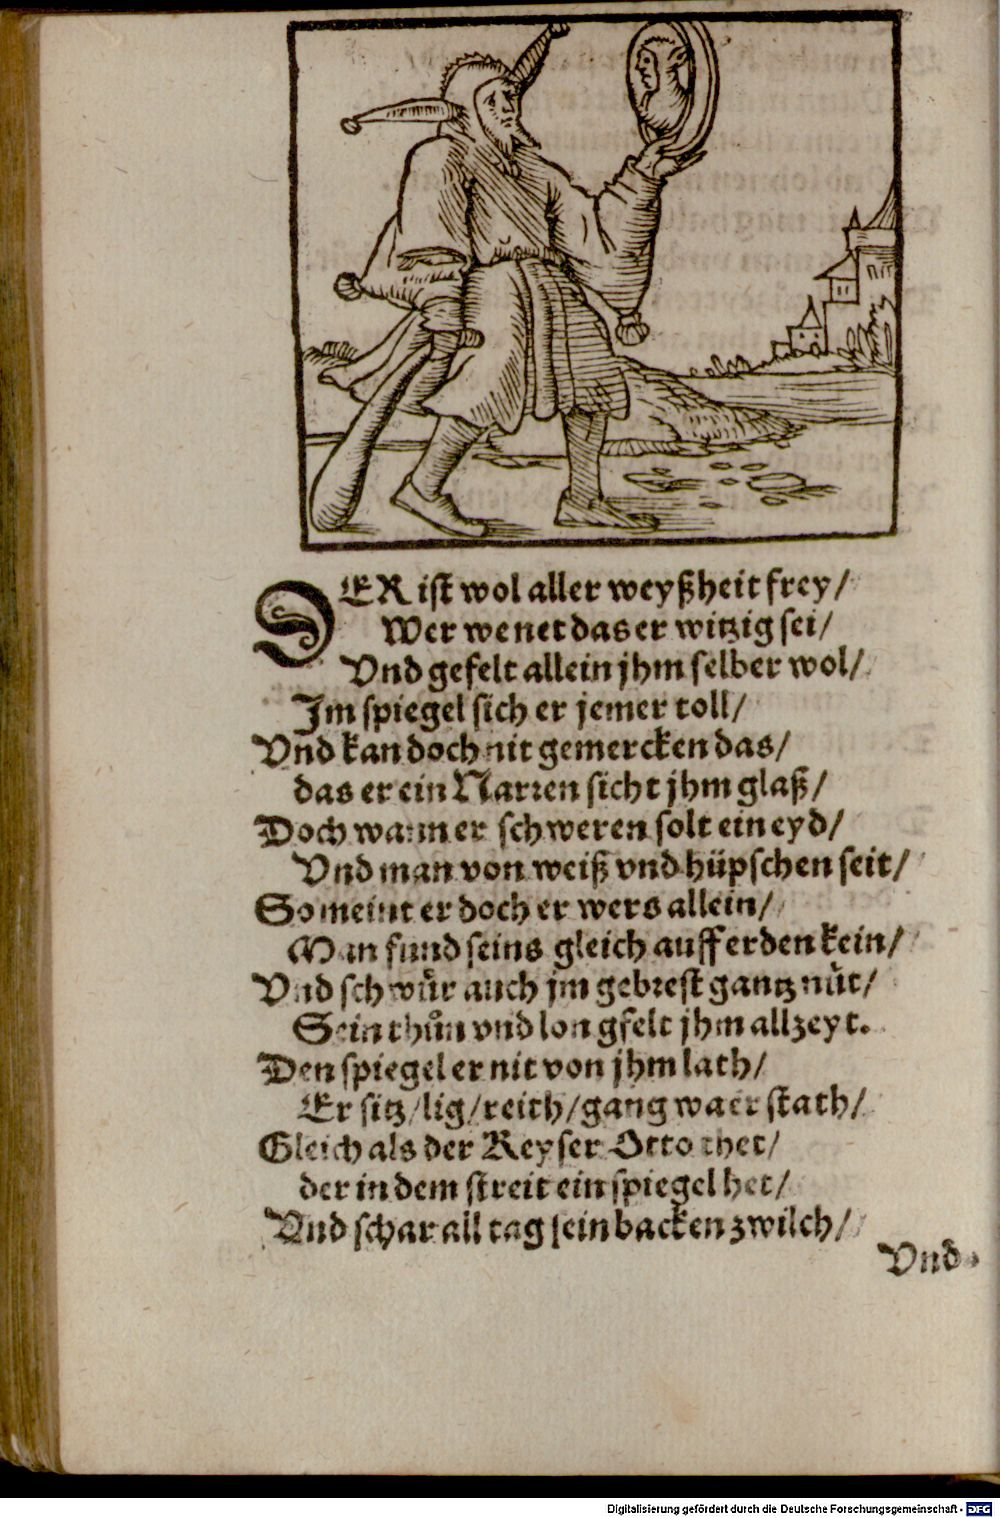 DER ist wol aller weyßheit frey/
Wer wenet das er witzig sei/
Vnd gefelt allein jhm selber wol/
Im spiegel sich er jemer toll/
Vnd kan doch nit gemercken das/
das er ein Narren sicht jhm glaß/
Doch wann er schweren solt ein eyd/
Vnd man von weiß vnd hüpschen seit/
So meint er doch er wers allein/
Man fund seins gleich auff erden kein/
Vnd schwůr auch jm gebrest gantz nüt/
Sein thůn vnd lon gfelt jhm allzeyt.
Den spiegel er nit von jhm lath/
Er sitz/lig/reith/gang wa er stath/
Gleich als der Keyser Otto thet/
der in dem streit ein spiegel het/
Vnd schar all tag sein backen zwilch/
Vnd
Digitalisierung gefördert durch die Deutsche Forschungsgemeinschaft - DFG